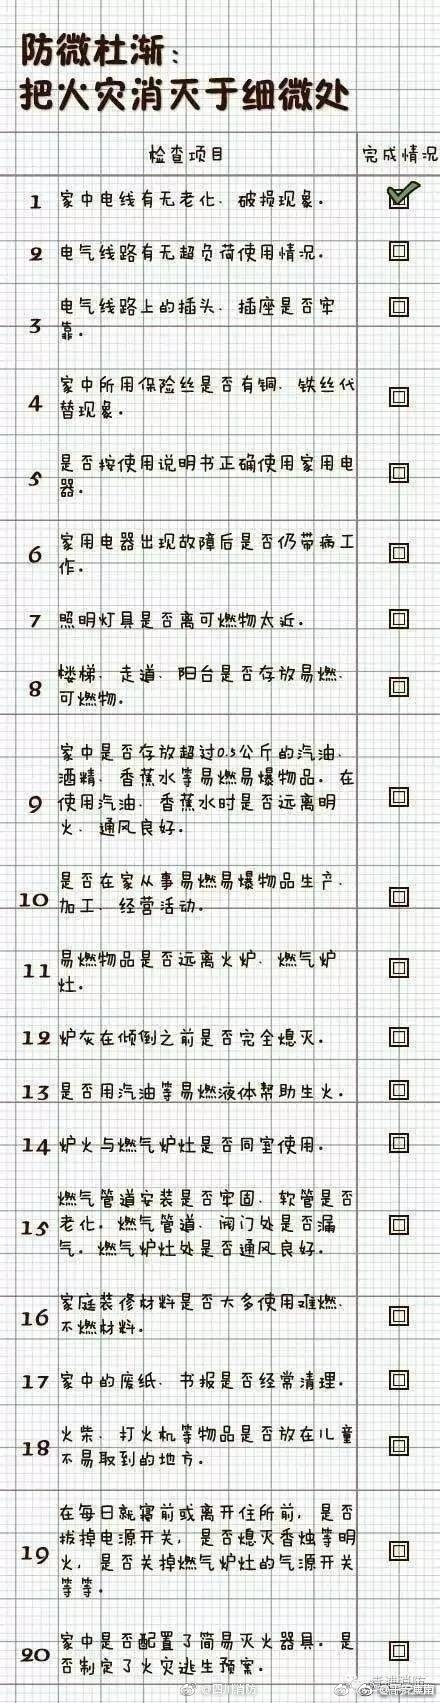 防微杜渐：
把火灾消灭于细微处
检查项目 完成情况
1 家中电线有无老化、破损现象。
2 电气线路有无超负荷使用情况。
3 电气线路上的插头、插座是否牢
靠。
4 家中所用保险丝是否有铜、铁丝代
替现象。
5 是否按使用说明书正确使用家用电
器。
6 家用电器出现故障后是否仍带病工
作。
7 照明灯具是否离可燃物太近。
8 楼梯、走道、阳台是否存放易燃、
可燃物。
9 家中是否存放超过0.5公斤的汽油、
酒精、香蕉水等易燃易爆物品。在
使用汽油、香蕉水时是否远离明
火、通风良好。
10 是否在家从事易燃易爆物品生产、
加工、经营活动。
11 易燃物品是否远离火炉、燃气炉
灶。
12 炉灰在倾倒之前是否完全熄灭。
13 是否用汽油等易燃液体帮助生火。
14 炉火与燃气炉灶是否同室使用。
15 燃气管道安装是否牢固，软管是否
老化。燃气管道、阀门处是否漏
气。燃气炉灶处是否通风良好。
16 家庭装修材料是否大多使用难燃、
不燃材料。
17 家中的废纸、书报是否经常清理。
18 火柴、打火机等物品是否放在儿童
不易取到的地方。
19 在每日就寝前或离开住所前，是否
拔掉电源开关，是否熄灭香烛等明
火，是否关掉燃气炉灶的气源开关
等等。
20 家中是否配置了简易灭火器具。是
否制定了火灾逃生预案。
@四川消防